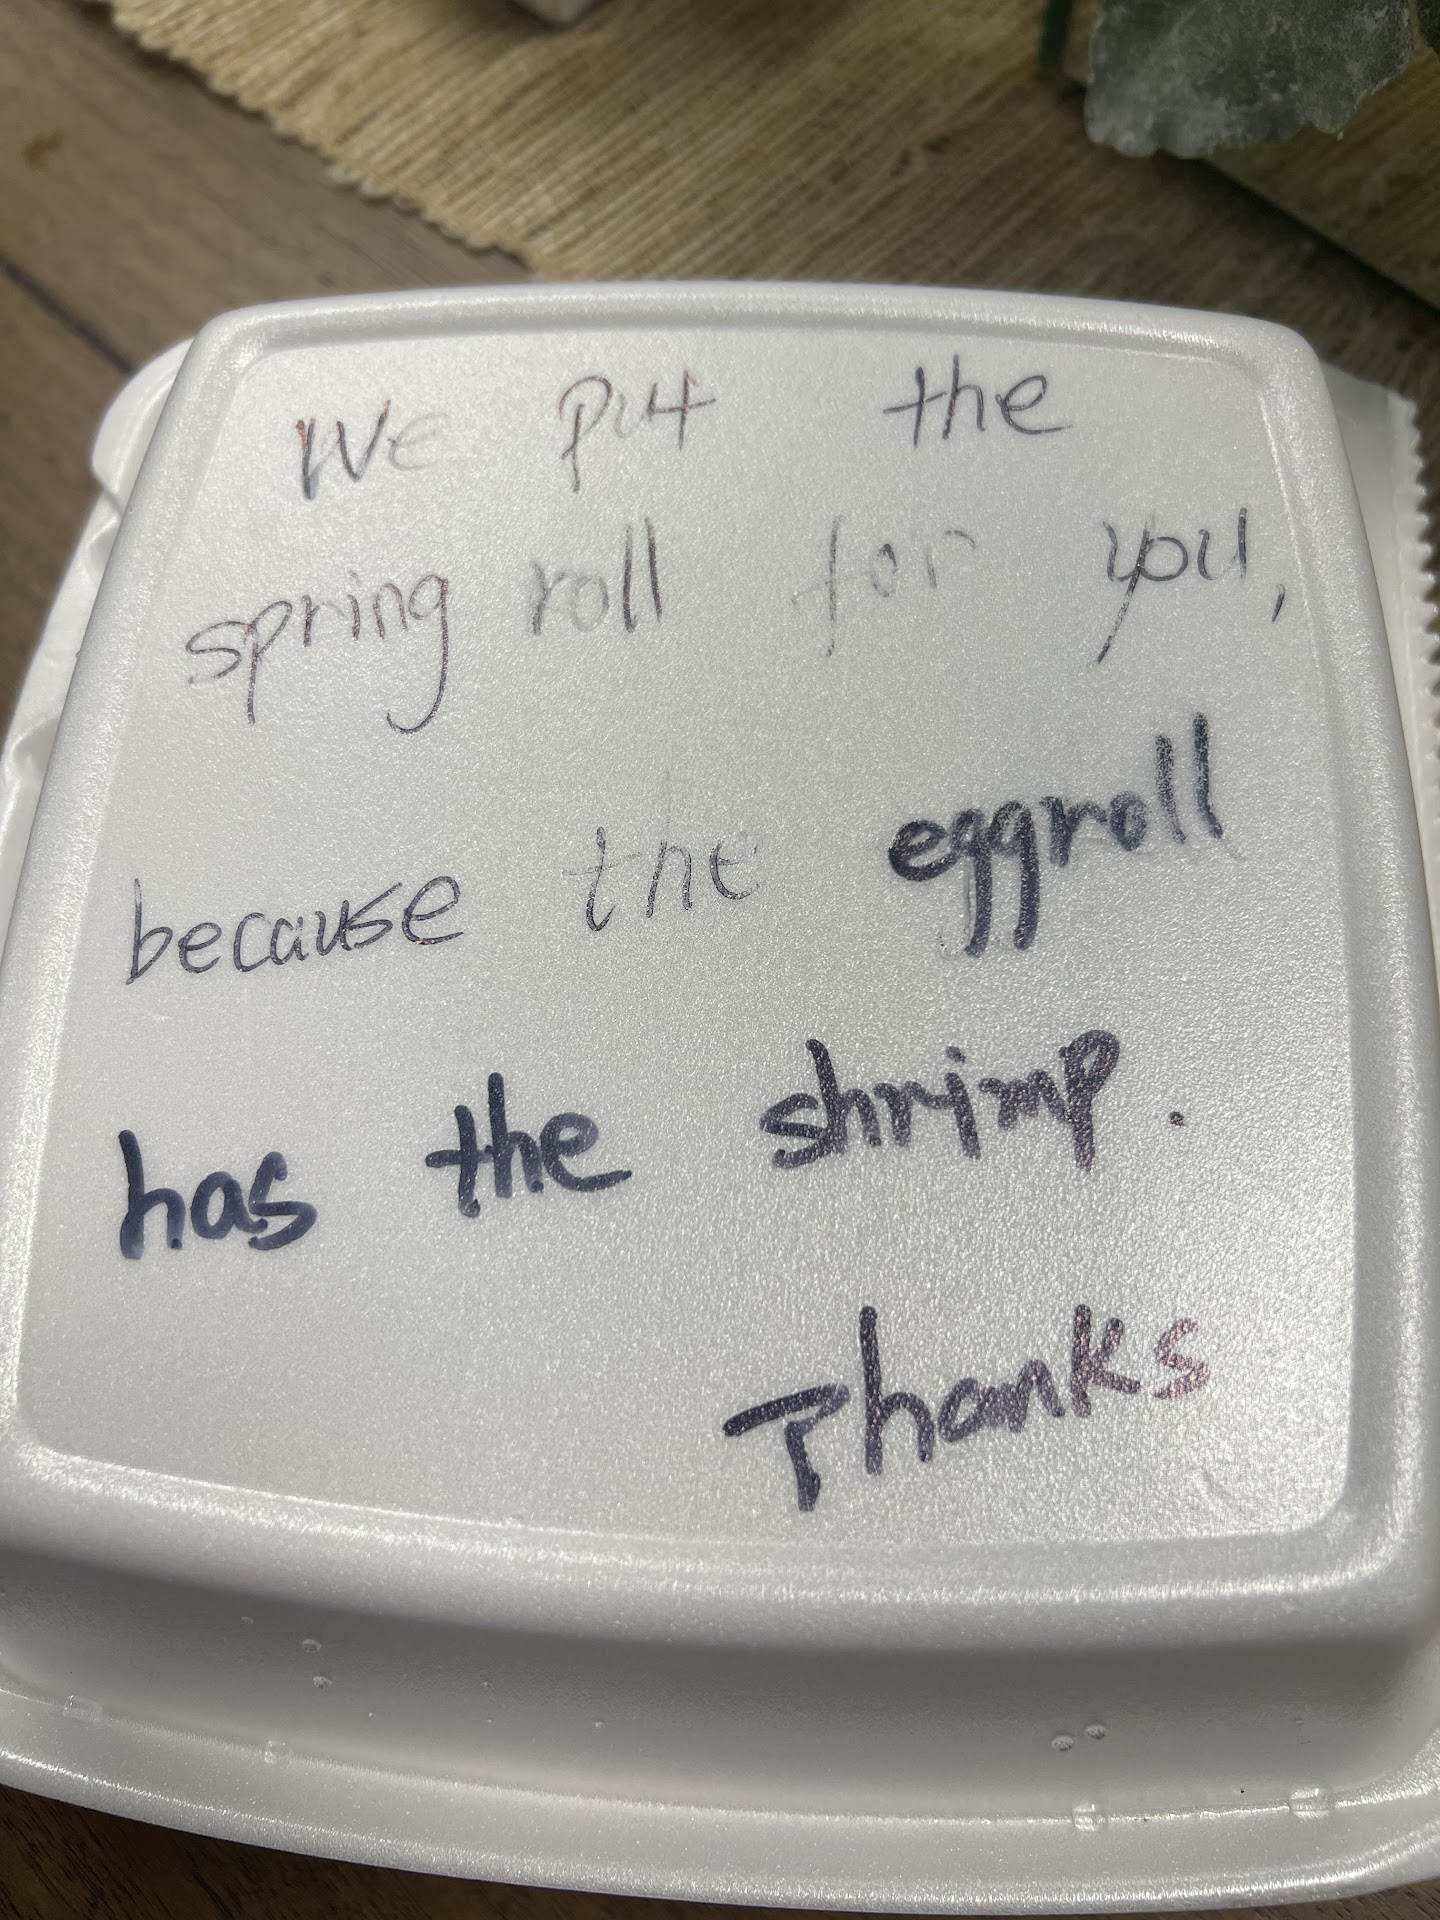 We put the
spring roll for you,
because the eggroll
has the shrimp.
Thanks